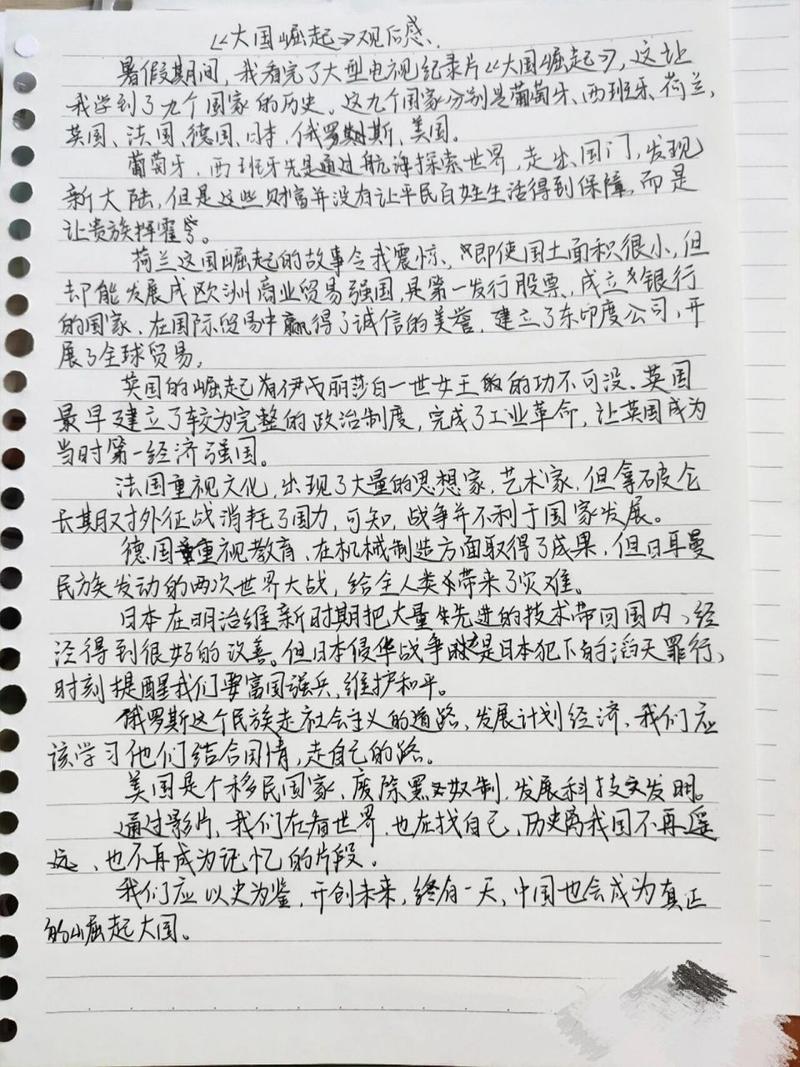 《大国崛起》观后感
暑假期间，我看完了大型电视纪录片《大国崛起》，这让
我学到了九个国家的历史。这九个国家分别是葡萄牙、西班牙、荷兰、
英国、法国、德国、日本、俄罗斯、美国。
葡萄牙、西班牙先是通过航海探索世界，走出国门，发现
新大陆，但是这些财富并没有让平民百姓生活得到保障，而是
让贵族挥霍。
荷兰这国崛起的故事令我震惊、即使国土面积很小，但
却能发展成欧洲商业贸易强国，是第一发行股票，成立银行
的国家、在国际贸易中赢得了诚信的美誉，建立了东印度公司，开
展了全球贸易，
英国的崛起有伊丽莎白一世女王的的功不可没、英国
最早建立了较为完整的政治制度，完成了工业革命，让英国成为
当时第一经济强国。
法国重视文化，出现了大量的思想家，艺术家，但拿破仑
长期对外征战消耗了国力，可知，战争并不利于国家发展。
德国重视教育、在机械制造方面取得了成果，但日耳曼
民族发动的两次世界大战，给全人类带来了灾难。
日本在明治维新时期把大量先进的技术带回国内、经
济得到很好的改善。但日本侵华战争是日本犯下的滔天罪行，
时刻提醒我们要富国强兵，维护和平。
俄罗斯这个民族走社会主义的道路、发展计划经济、我们应
该学习他们结合国情，走自己的路。
美国是个移民国家、废除黑奴制，发展科技发明。
通过影片，我们在看世界，也在找自己，历史离我国不再遥
远、也不再成为记忆的片段。
我们应以史为鉴，开创未来，终有一天，中国也会成为真正
的崛起大国。